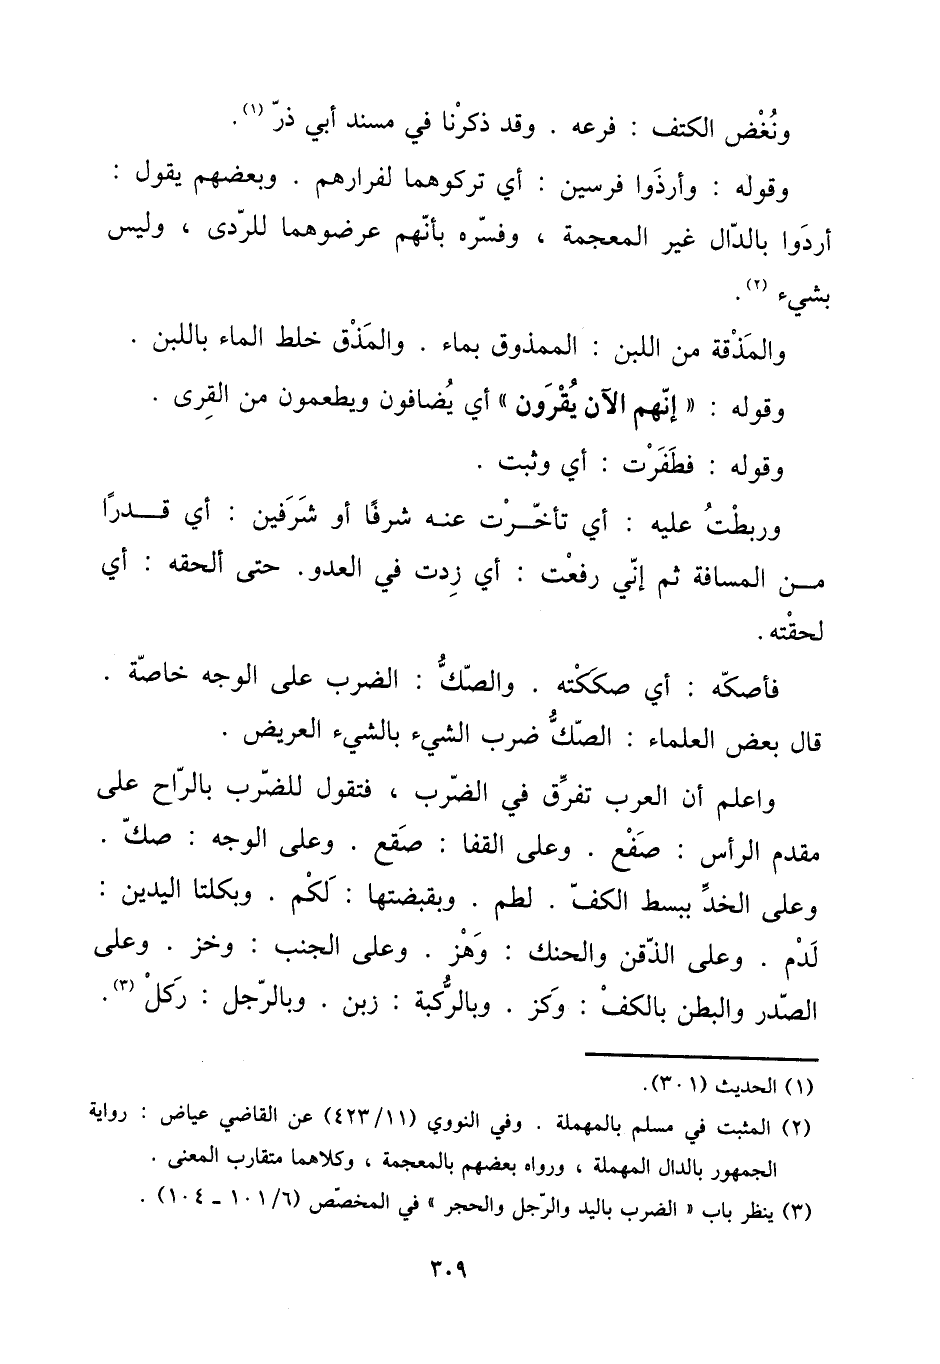 ونُغْض الكتف : فرعه . وقد ذكرْنا في مسند أبي ذرّ (١).
وقوله : وأرذَوا فرسين : أي تركوهما لفرارهم . وبعضهم يقول :
أردَوا بالدّال غير المعجمة ، وفسّره بأنّهم عرضوهما للرّدى ، وليس
بشيء (٢).
والمَذْقة من اللبن : الممذوق بماء . والمَذْق خلط الماء باللبن .
وقوله : « إنّهم الآن يُقْرَون » أي يُضافون ويطعمون من القِرى .
وقوله : فطَفَرْت : أي وثبت .
وربطْتُ عليه : أي تأخّرْت عنه شرفًا أو شَرَفين : أي قدرًا
من المسافة ثم إنّي رفعْت : أي زِدت في العدو. حتى ألحقه : أي
لحقْته .
فأصكّه : أي صككْته . والصّكُّ : الضرب على الوجه خاصّة .
قال بعض العلماء : الصّكُّ ضرب الشيء بالشيء العريض .
واعلم أن العرب تفرِّق في الضّرب ، فتقول للضّرب بالرّاح على
مقدم الرأس : صَفْع . وعلى القفا : صَقع . وعلى الوجه : صكّ .
وعلى الخدِّ ببسط الكفّ . لطم . وبقبضتها : لَكْم . وبكلتا اليدين :
لَدْم . وعلى الذّقن والحنك : وَهْز . وعلى الجنب : وخز . وعلى
الصّدر والبطن بالكفْ : وَكز . وبالرُّكبة : زبن . وبالرّجل : ركلْ (٣).
(١) الحديث (٣٠١).
(٢) المثبت في مسلم بالمهملة . وفي النووي (٤٢٣/١١) عن القاضي عياض : رواية
الجمهور بالدال المهملة ، ورواه بعضهم بالمعجمة ، وكلاهما متقارب المعنى .
(٣) ينظر باب « الضرب باليد والرّجل والحجر » في المخصّص (١٠١/٦ ـ ١٠٤) .
٣٠٩